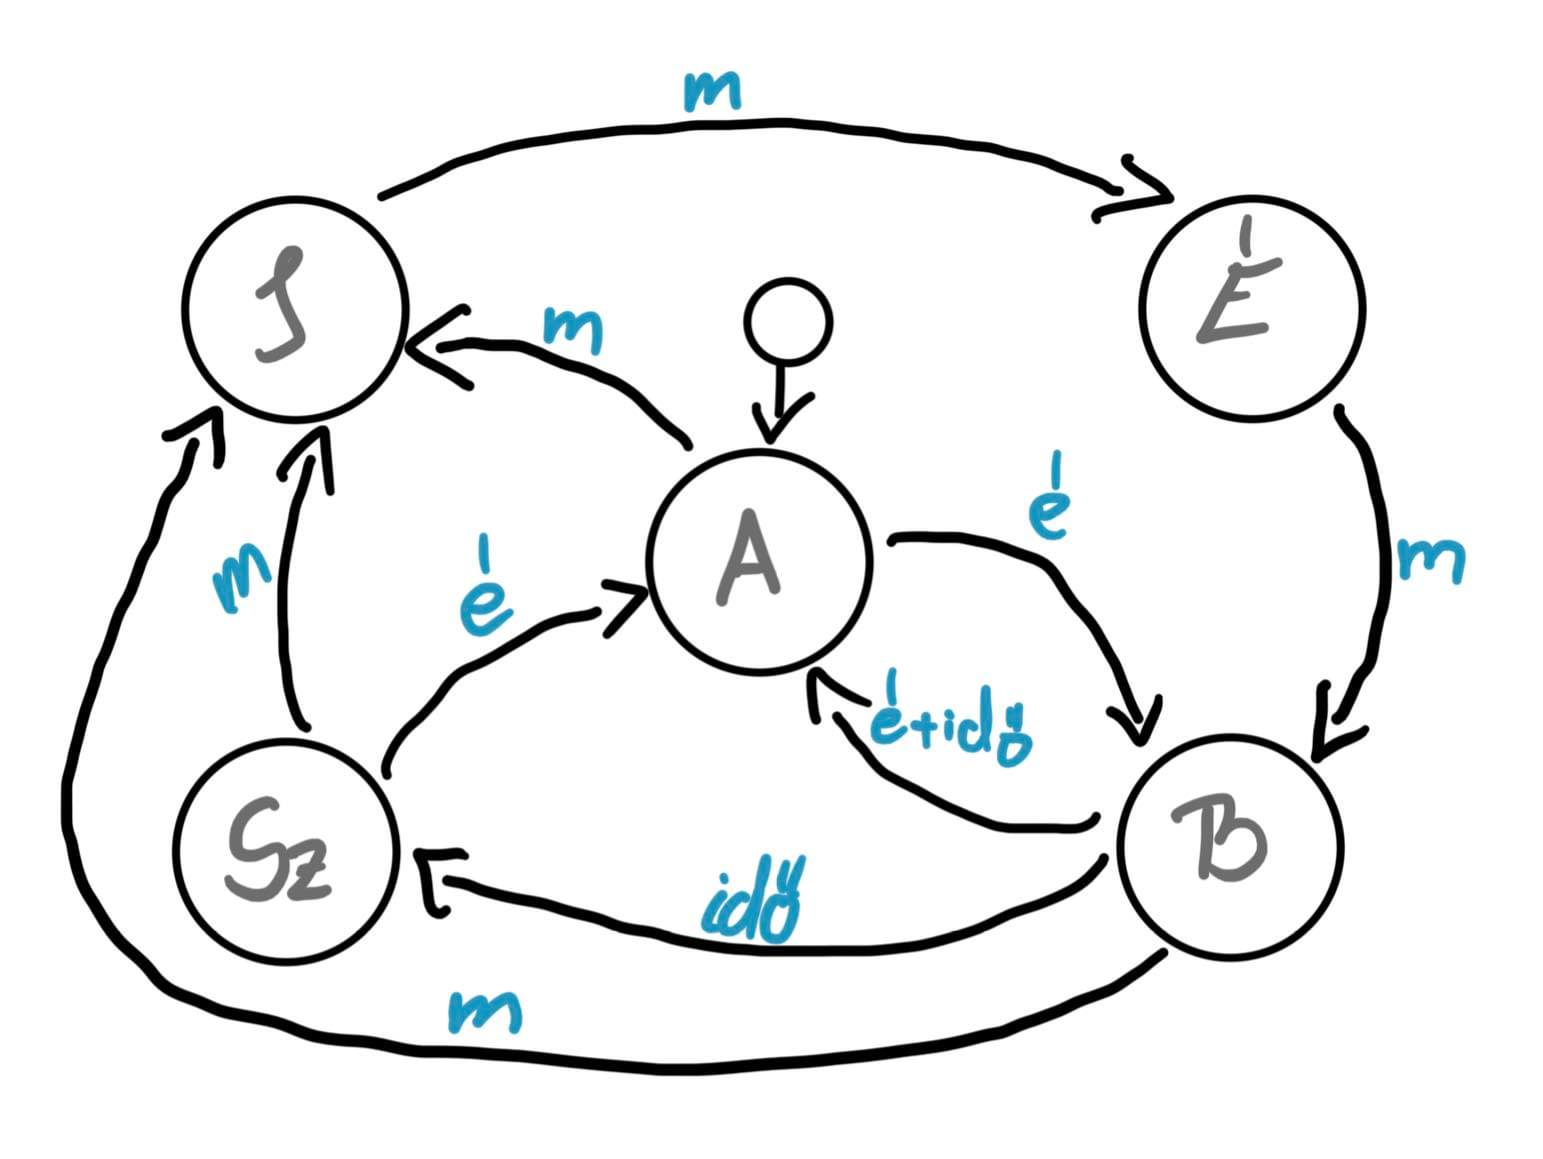 m
J
É
m
A
é
m
m
é
é+idő
Sz
B
idő
m